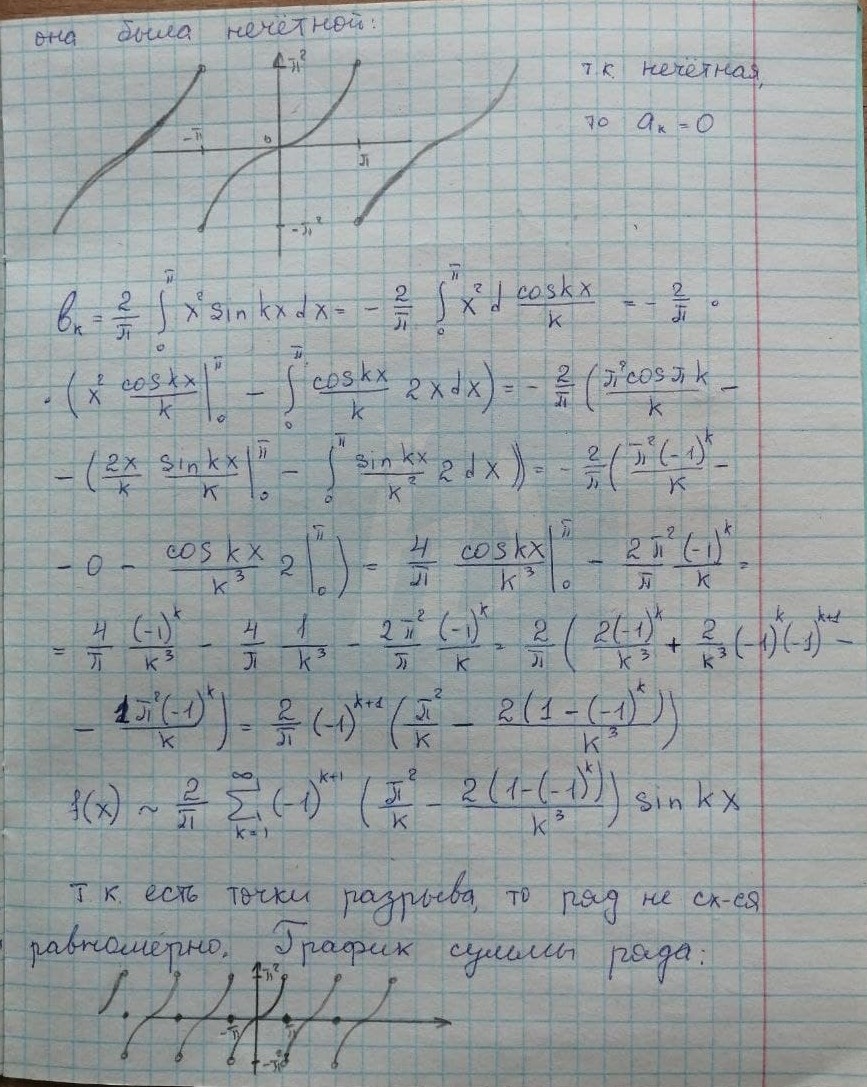 она была нечётной:
π²
т.к. нечётная,
-π 0 π
то aₖ = 0
-π²
bₖ = 2/π ∫₀^π x² sin kx dx = - 2/π ∫₀^π x² d cos kx / k = - 2/π ·
· ( x² cos kx / k |₀^π - ∫₀^π cos kx / k 2x dx ) = - 2/π ( π² cos πk / k -
- ( 2x/k sin kx / k |₀^π - ∫₀^π sin kx / k² 2 dx ) ) = - 2/π ( π² (-1)^k / k -
- 0 - cos kx / k³ 2 |₀^π ) = 4/π cos kx / k³ |₀^π - 2π²/π (-1)^k / k =
= 4/π (-1)^k / k³ - 4/π 1/k³ - 2π²/π (-1)^k / k = 2/π ( 2(-1)^k / k³ + 2/k³ (-1)^k (-1)^(k+1) -
- 1π² (-1)^k / k ) = 2/π (-1)^(k+1) ( π²/k - 2(1-(-1)^k) / k³ )
f(x) ~ 2/π ∑_(k=1)^∞ (-1)^(k+1) ( π²/k - 2(1-(-1)^k) / k³ ) sin kx
т.к. есть точки разрыва, то ряд не сх-ся
равномерно. График суммы ряда:
π²
-π π
-π²